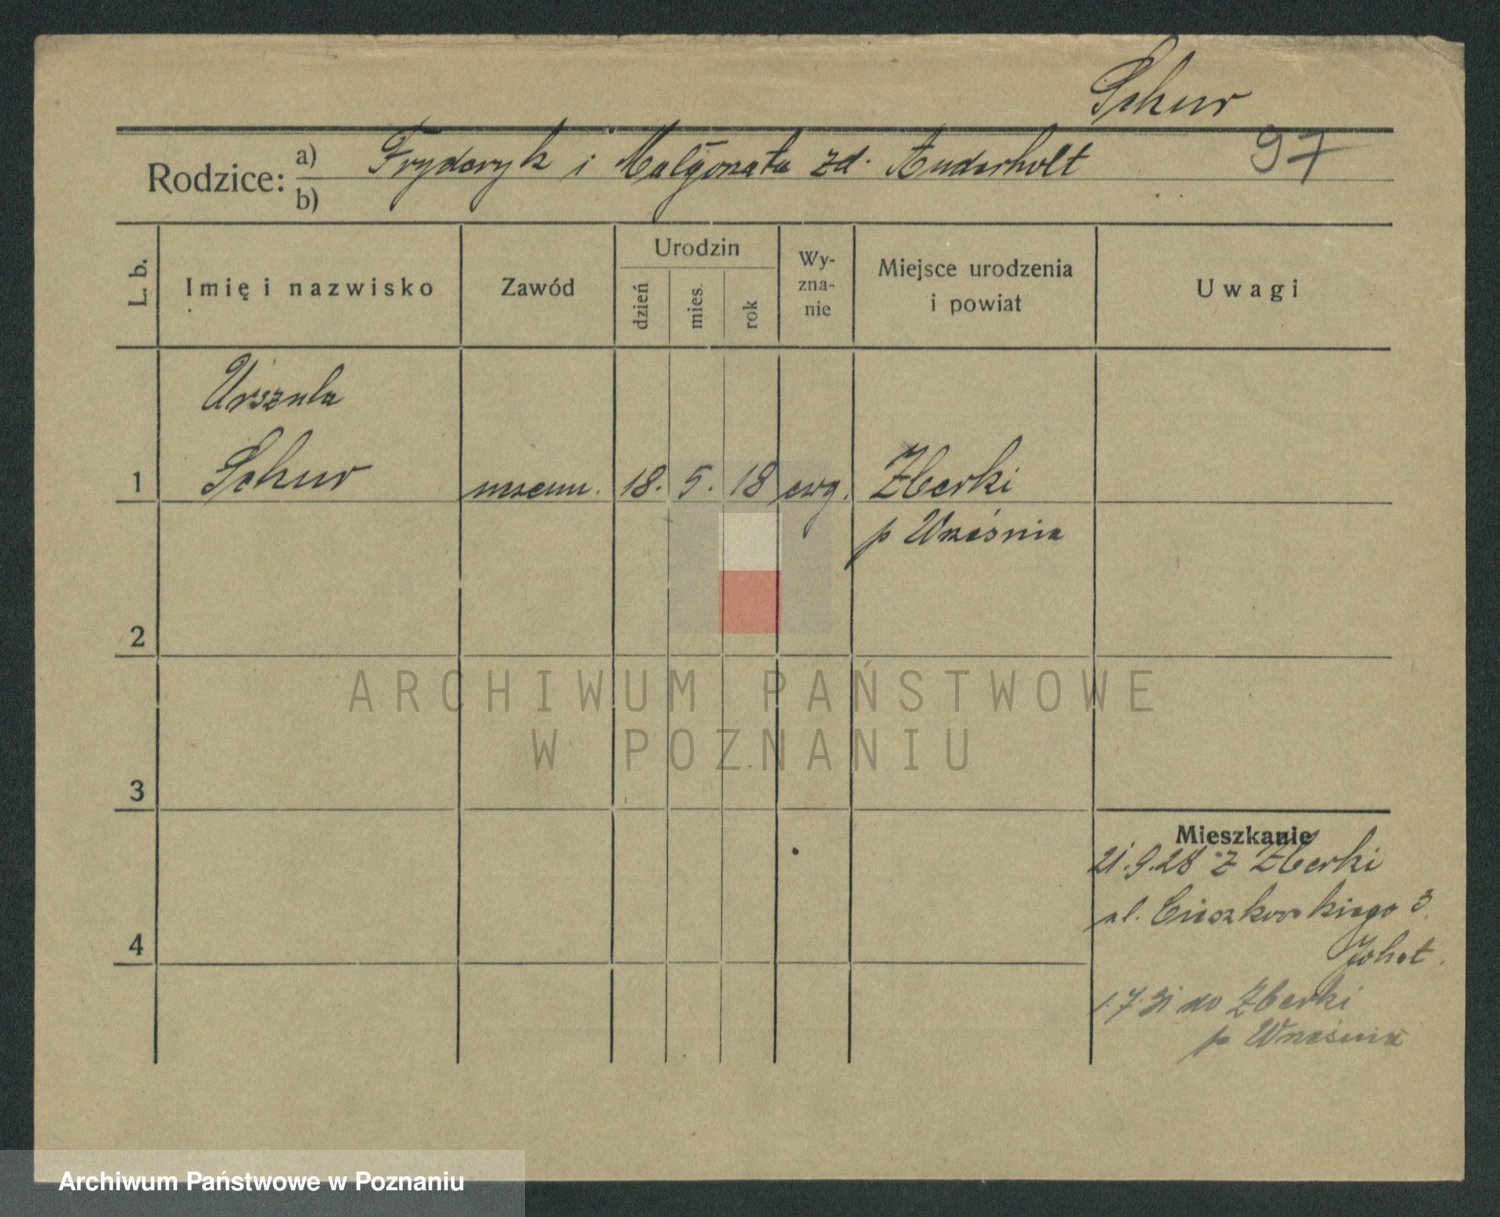 Schur
97
Rodzice: a) Fryderyk i Małgorzata zd. Anderholt
b)
L. b. Imię i nazwisko Zawód Urodzin dzień mies. rok Wyznanie Miejsce urodzenia i powiat Uwagi
Urszula
1 Schur uczenn. 18. 5. 18 ewg. Zberki
p Września
2
ARCHIWUM PAŃSTWOWE
W POZNANIU
3
Mieszkanie
21.9.28 z Zberki
4 al. Cieszkowskiego 3.
1.7.31 do Zberki
p Września
Archiwum Państwowe w Poznaniu